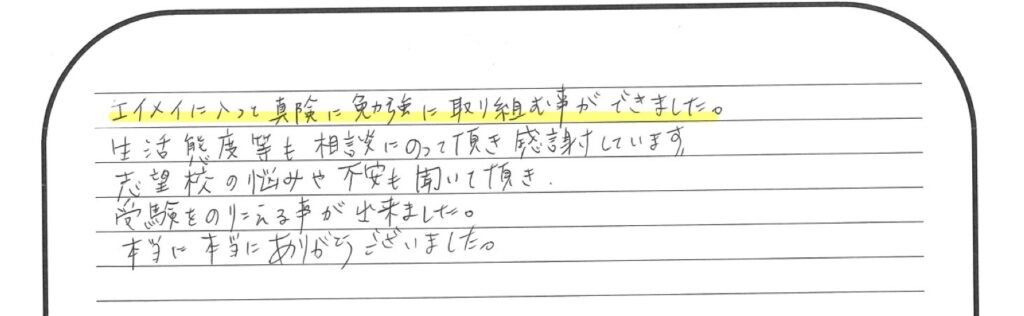 エイメイに入って真険に勉強に取り組む事ができました。
生活態度等も相談にのって頂き感謝しています。
志望校の悩みや不安も聞いて頂き.
受験をのりこえる事が出来ました。
本当に本当にありがとうございました。